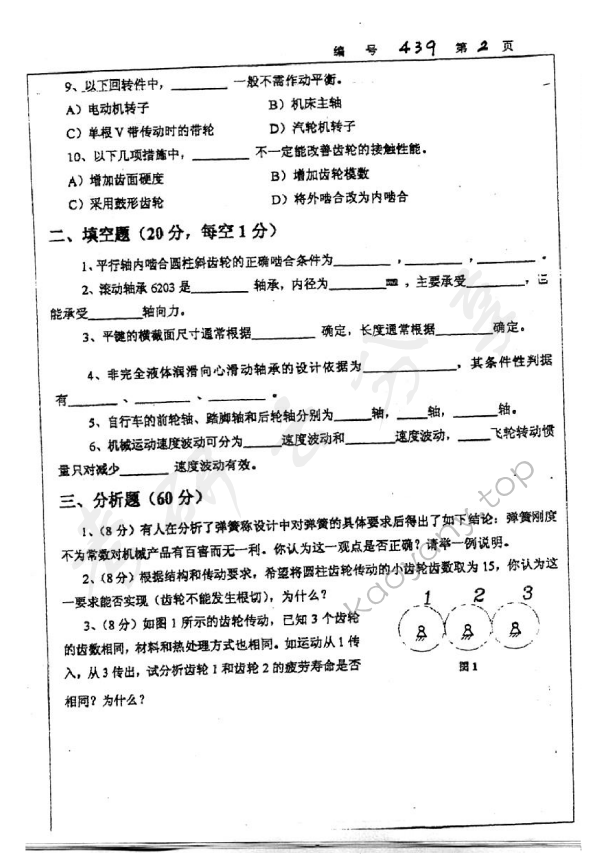 编 号 439 第 2 页
9、以下回转件中，________ 一般不需作动平衡。
A）电动机转子 B）机床主轴
C）单根 V 带传动时的带轮 D）汽轮机转子
10、以下几项措施中，________ 不一定能改善齿轮的接触性能。
A）增加齿面硬度 B）增加齿轮模数
C）采用鼓形齿轮 D）将外啮合改为内啮合
二、填空题（20 分，每空 1 分）
1、平行轴内啮合圆柱斜齿轮的正确啮合条件为________，________，________。
2、滚动轴承 6203 是________ 轴承，内径为________ ，主要承受________，
能承受________轴向力。
3、平键的横截面尺寸通常根据________ 确定，长度通常根据________确定。
4、非完全液体润滑向心滑动轴承的设计依据为________，其条件性判据
有________、________、________。
5、自行车的前轮轴、踏脚轴和后轮轴分别为____轴，____轴，____轴。
6、机械运动速度波动可分为____速度波动和________速度波动，____飞轮转动惯
量只对减少______ 速度波动有效。
三、分析题（60 分）
1、（8 分）有人在分析了弹簧称设计中对弹簧的具体要求后得出了如下结论：弹簧刚度
不为常数对机械产品有百害而无一利。你认为这一观点是否正确？请举一例说明。
2、（8 分）根据结构和传动要求，希望将圆柱齿轮传动的小齿轮齿数取为 15，你认为这
一要求能否实现（齿轮不能发生根切），为什么？
3、（8 分）如图 1 所示的齿轮传动，已知 3 个齿轮
的齿数相同，材料和热处理方式也相同。如运动从 1 传
入，从 3 传出，试分析齿轮 1 和齿轮 2 的疲劳寿命是否
相同？为什么？
1 2 3
图 1
kaoyany.top